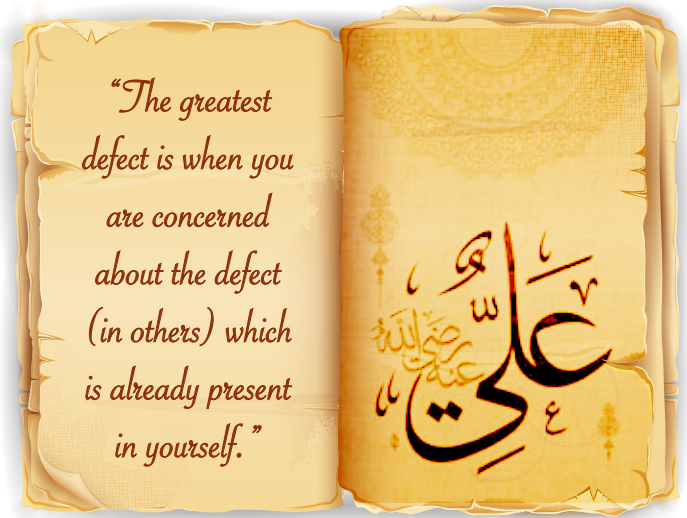 “The greatest
defect is when you
are concerned
about the defect
(in others) which
is already present
in yourself.”
عَلِيٌّ
رَضِيَ اللهُ عَنْهُ